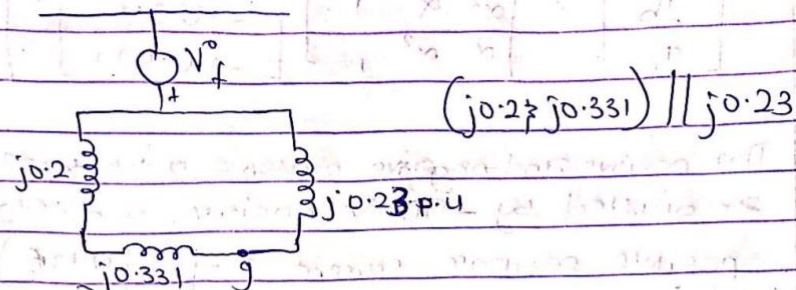 V°f
+
(j0.2+j0.331) || j0.23
j0.2
j0.23 p.u
j0.331
g